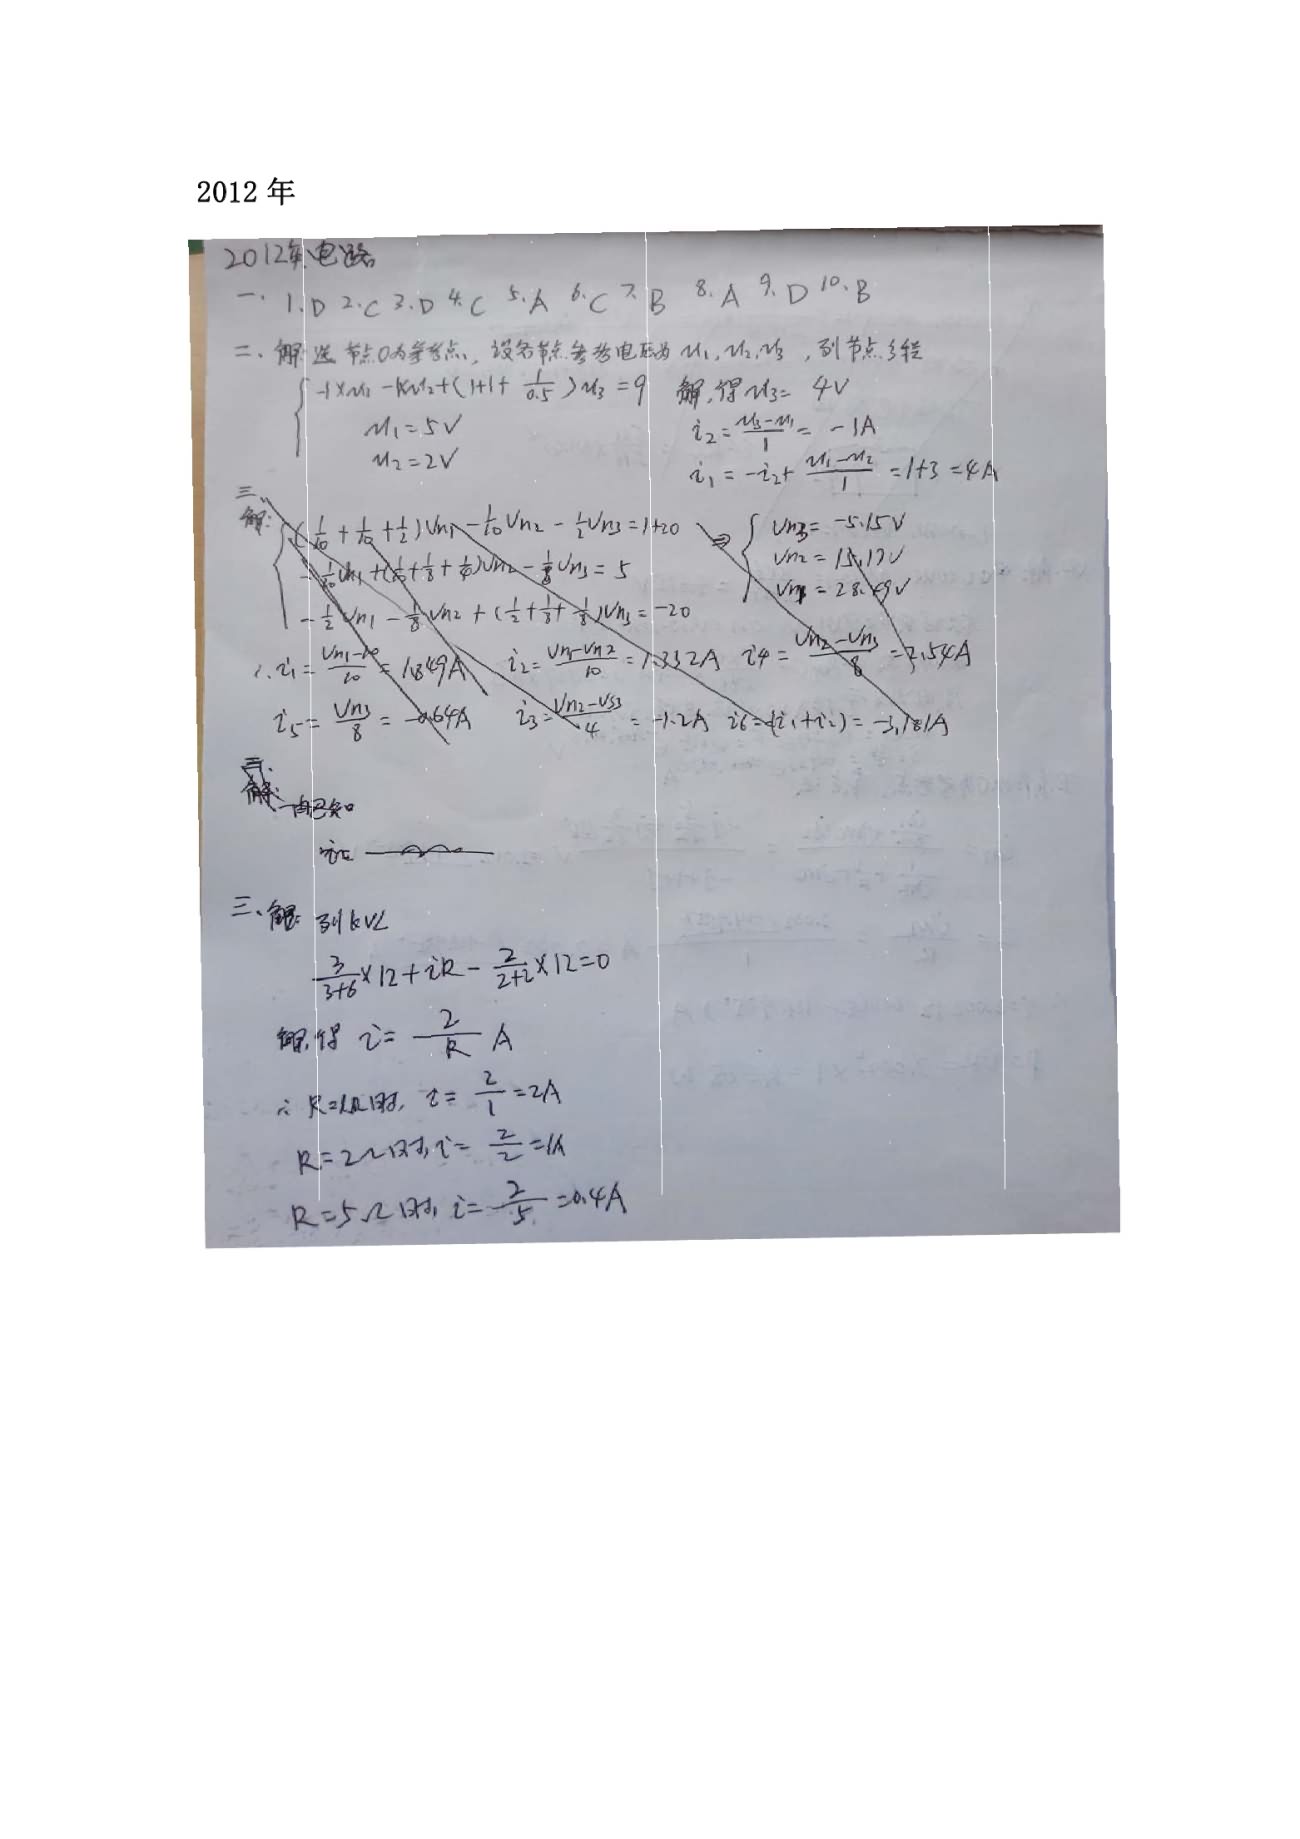 2012 年
2012年电路
一. 1.D 2.C 3.D 4.C 5.A 6.C 7.B 8.A 9.D 10.B
二、解:选节点0为参考点,设各节点参考电压为u₁,u₂,u₃,列节点方程
-1×u₁-1×u₂+(1+1+1/0.5)u₃=9 解得u₃= 4V
u₁=5V i₂=(u₃-u₁)/1=-1A
u₂=2V i₁=-i₂+(u₁-u₂)/1=1+3=4A
三、
解:
(1/10+1/10+1/2)Vn₁-1/10Vn₂-1/2Vn₃=1+20 ⇒ Vn₃=-5.15V
-1/10Vn₁+(1/10+1/8+1/4)Vn₂-1/8Vn₃=5 Vn₂=15.17V
-1/2Vn₁-1/8Vn₂+(1/2+1/8+1/8)Vn₃=-20 Vn₁=28.49V
∴i₁=(Vn₁-10)/10=1.849A i₂=(Vn₁-Vn₂)/10=1.332A i₄=(Vn₂-Vn₃)/8=2.54A
i₅=Vn₃/8=-0.64A i₃=(Vn₂-Vs₃)/4=-1.2A i₆=-(i₁+i₂)=-3.181A
三.
解:由已知
三、解:列KVL
3/(3+6)×12+iR-2/(2+2)×12=0
解得 i=2/R A
∴R=1Ω时,i=2/1=2A
R=2Ω时,i=2/2=1A
R=5Ω时,i=2/5=0.4A